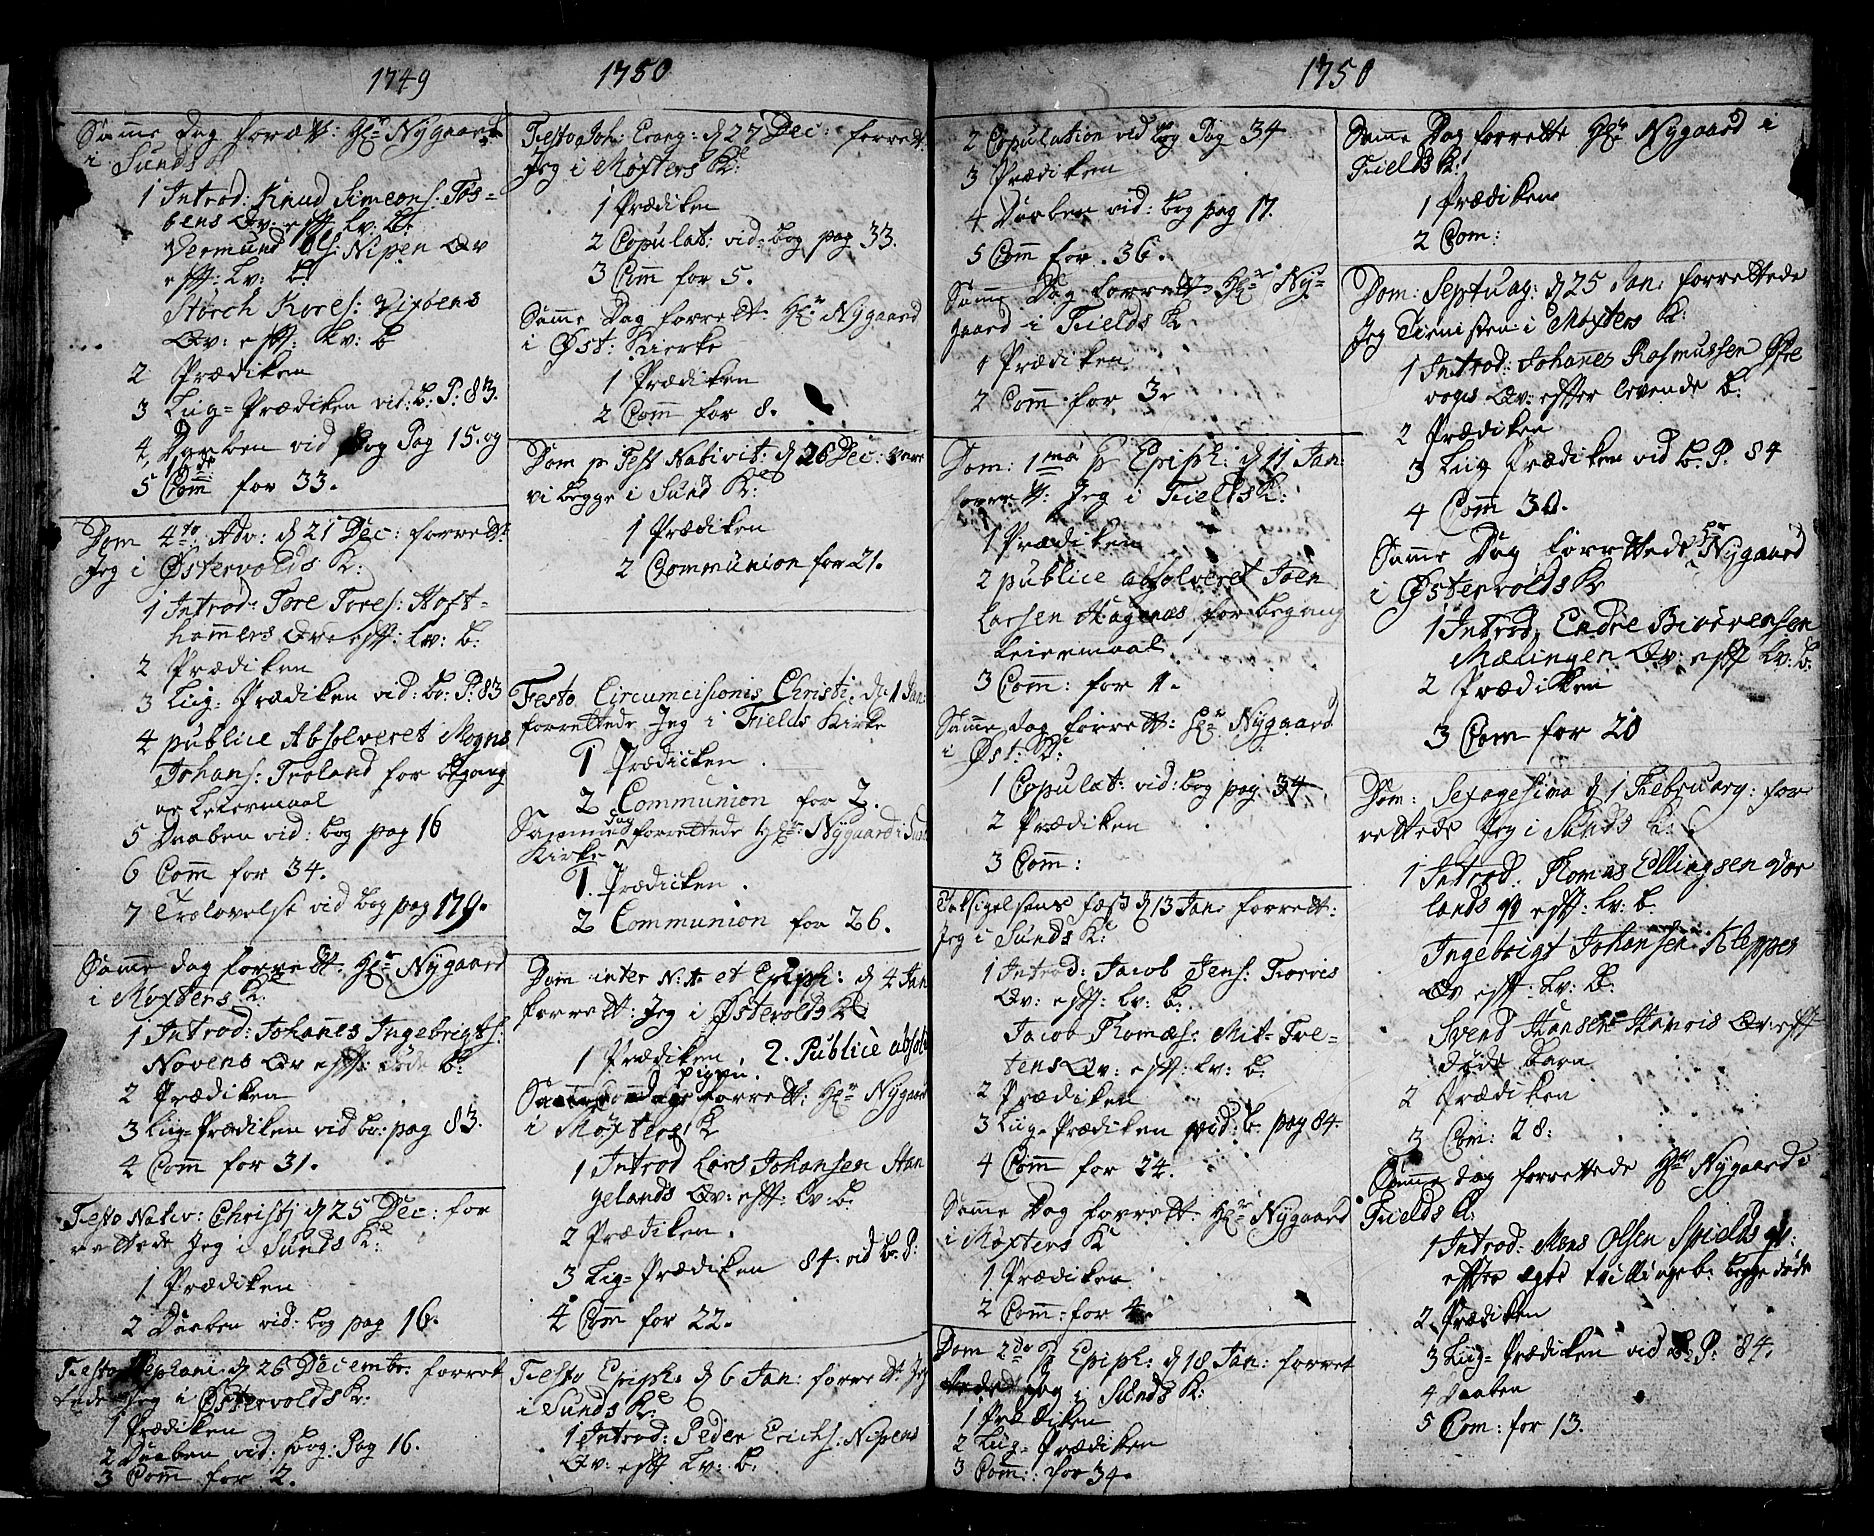 1749
Samme Dag forrett: Hr Nygaard
i Sunds K
1 Introd: Knud Simeons: Tøs-
bens Qv: eft: Lv: B:
Vermund Ols: Nipen Qv
eft: Lv: B:
Storch Kores: Vixøens
Qv: eft: Lv: B
2 Prædiken
3 Liig-Prædiken vid: B: P: 83.
4 Daaben vid Bog Pag 15. og
5 Comm for 33.
Dom 4to Adv: d 21 Dec: forrett:
Jeg i Østervolds K:
1 Introd: Tore Tores: Hoft-
hammers Qv: eft: Lv: B:
2 Prædiken
3 Liig-Prædiken vid: B: P: 83
4 publice Absolveret Mogns
Johans: Troland for begang
en Leiermaal
5 Daaben vid: Bog pag 16
6 Comm for 34.
7 Trolovelse vid Bog pag 179.
Samme dag forrett: Hr Nygaard
i Møxters K:
1 Introd: Johanes Ingebrigts:
Novens Qv eft: døde B:
2 Prædiken
3 Liig-Prædiken vid B: pag 83.
4 Comm for 31.
Festo Nativ: Christj d 25 Dec: for
rettede Jeg i Sunds K:
1 Prædiken
2 Daaben vid: Bog pag 16.
Festo Stephani d 26 Decembr: forret
tede Jeg i Østervolds K:
1 Prædiken
2 Daaben vid: Bog: Pag 16.
3 Comm for 2.
1750
Festo Joh: Evang: d 27 Dec: forrett:
Jeg i Møxters K:
1 Prædiken
2 Copulat: vid: Bog pag 33.
3 Comm for 5.
Samme Dag forrett: Hr Nygaard
i Øst: Kierke
1 Prædiken
2 Comm for 8.
Dom p Fest Nativit: d 28 Dec: vare
vi begge i Sund K:
1 Prædiken
2 Communion for 21.
Festo Circumcisionis Christi, d: 1 Jan:
forrettede Jeg i Fields Kirke
1 Prædicken.
2 Communion for 2.
Samme dag forrettede Hr: Nygaard i Sund
Kirke
1. Prædicken.
2 Communion for 26.
Dom inter N: A: et Epiph: d 4 Jan
forrett: Jeg i Østervolds K:
1 Prædiken. 2. Publice absolv
pigen.
Samme dag forrett: Hr Nygaard
i Møxters K
1 Introd Lars Johansen Han
gelands Qv: eft: Lv: B:
2 Prædiken.
3 Liig-Prædiken 84. vid B: P:
4 Comm for 22.
Festo Epiph: d 6 Jan: forrett: Jeg
i Sunds K:
1 Introd: Peder Erichs: Nipens
Qv: eft Lv: B:
1750
2 Copulation vid Bog Pag 34
3 Prædiken
4 Daaben vid: Bog pag 17.
5 Comm for 36.
Samme Dag forrett: Hr Ny-
gaard i Fields K
1 Prædiken
2 Comm for 3.
Dom: 1ma p Epiph: d 11 Jan:
forrett: Jeg i Fields K:
1 Prædiken
2 publice absolveret Joen
Larsen Hagenæs for begang
Leiermaal
3 Comm: for 1.
Samme dag forrett: Hr Nygaard
i Øst: K:
1 Copulat: vid: Bog pag 34
2 Prædiken
3 Comm:
Taksigelsens fæst d 13 Jan: forrett:
Jeg i Sunds K:
1 Introd: Jacob Jens: Torvis
Qv: eft: Lv: B:
Jacob Thomæs: Mit-Tve-
tens Qv: eft: Lv: B:
2 Prædiken
3 Liig-Prædiken vid: B: pag 84.
4 Comm for 24.
Samme Dag forrett: Hr Nygaard
i Møxters K
1 Prædiken
2 Comm: for 4.
Dom 2do p Epiph: d 18 Jan: forret
tede Jeg i Sunds K:
1 Prædiken
2 Liig-Prædiken
3 Comm: for 34.
Samme Dag forrette Hr Nygaard i
Fields K:
1 Prædiken
2 Com:
Dom: Septuag: d 25 Jan: forrettede
Jeg Tienisten i Møxters K:
1 Introd: Johanes Rasmussen Øfre
vogs Qv: efter levende B:
2 Prædiken
3 Liig Prædiken vid B: P: 84
4 Comm 30.
Samme Dag forrettede Hr Nygaard
i Østervolds K
1 Introd: Endre Biørensen
Mælingen Qv: eft Lv: B:
2 Prædiken
3 Com for 20
Dom: Sexagesima d 1 February: for
rettede Jeg i Sunds K:
1 Introd: Thomas Ellingsen Vor
lands qv eft: Lv: B:
Ingebrigt Johansen Kleppes
Qv eft: Lv: B:
Svend Hansen Hanvis Qv: eft
døde Barn
2 Prædiken
3 Com: 28:
Samme dag forrettede Hr Nygaard i
Fields K:
1 Introd: Mons Olsen Spields qv:
efter ægte tvillinge b: begge døde
2 Prædiken
3 Liig-Prædiken vid B: P: 84.
4 Daaben
5 Com: for 13.